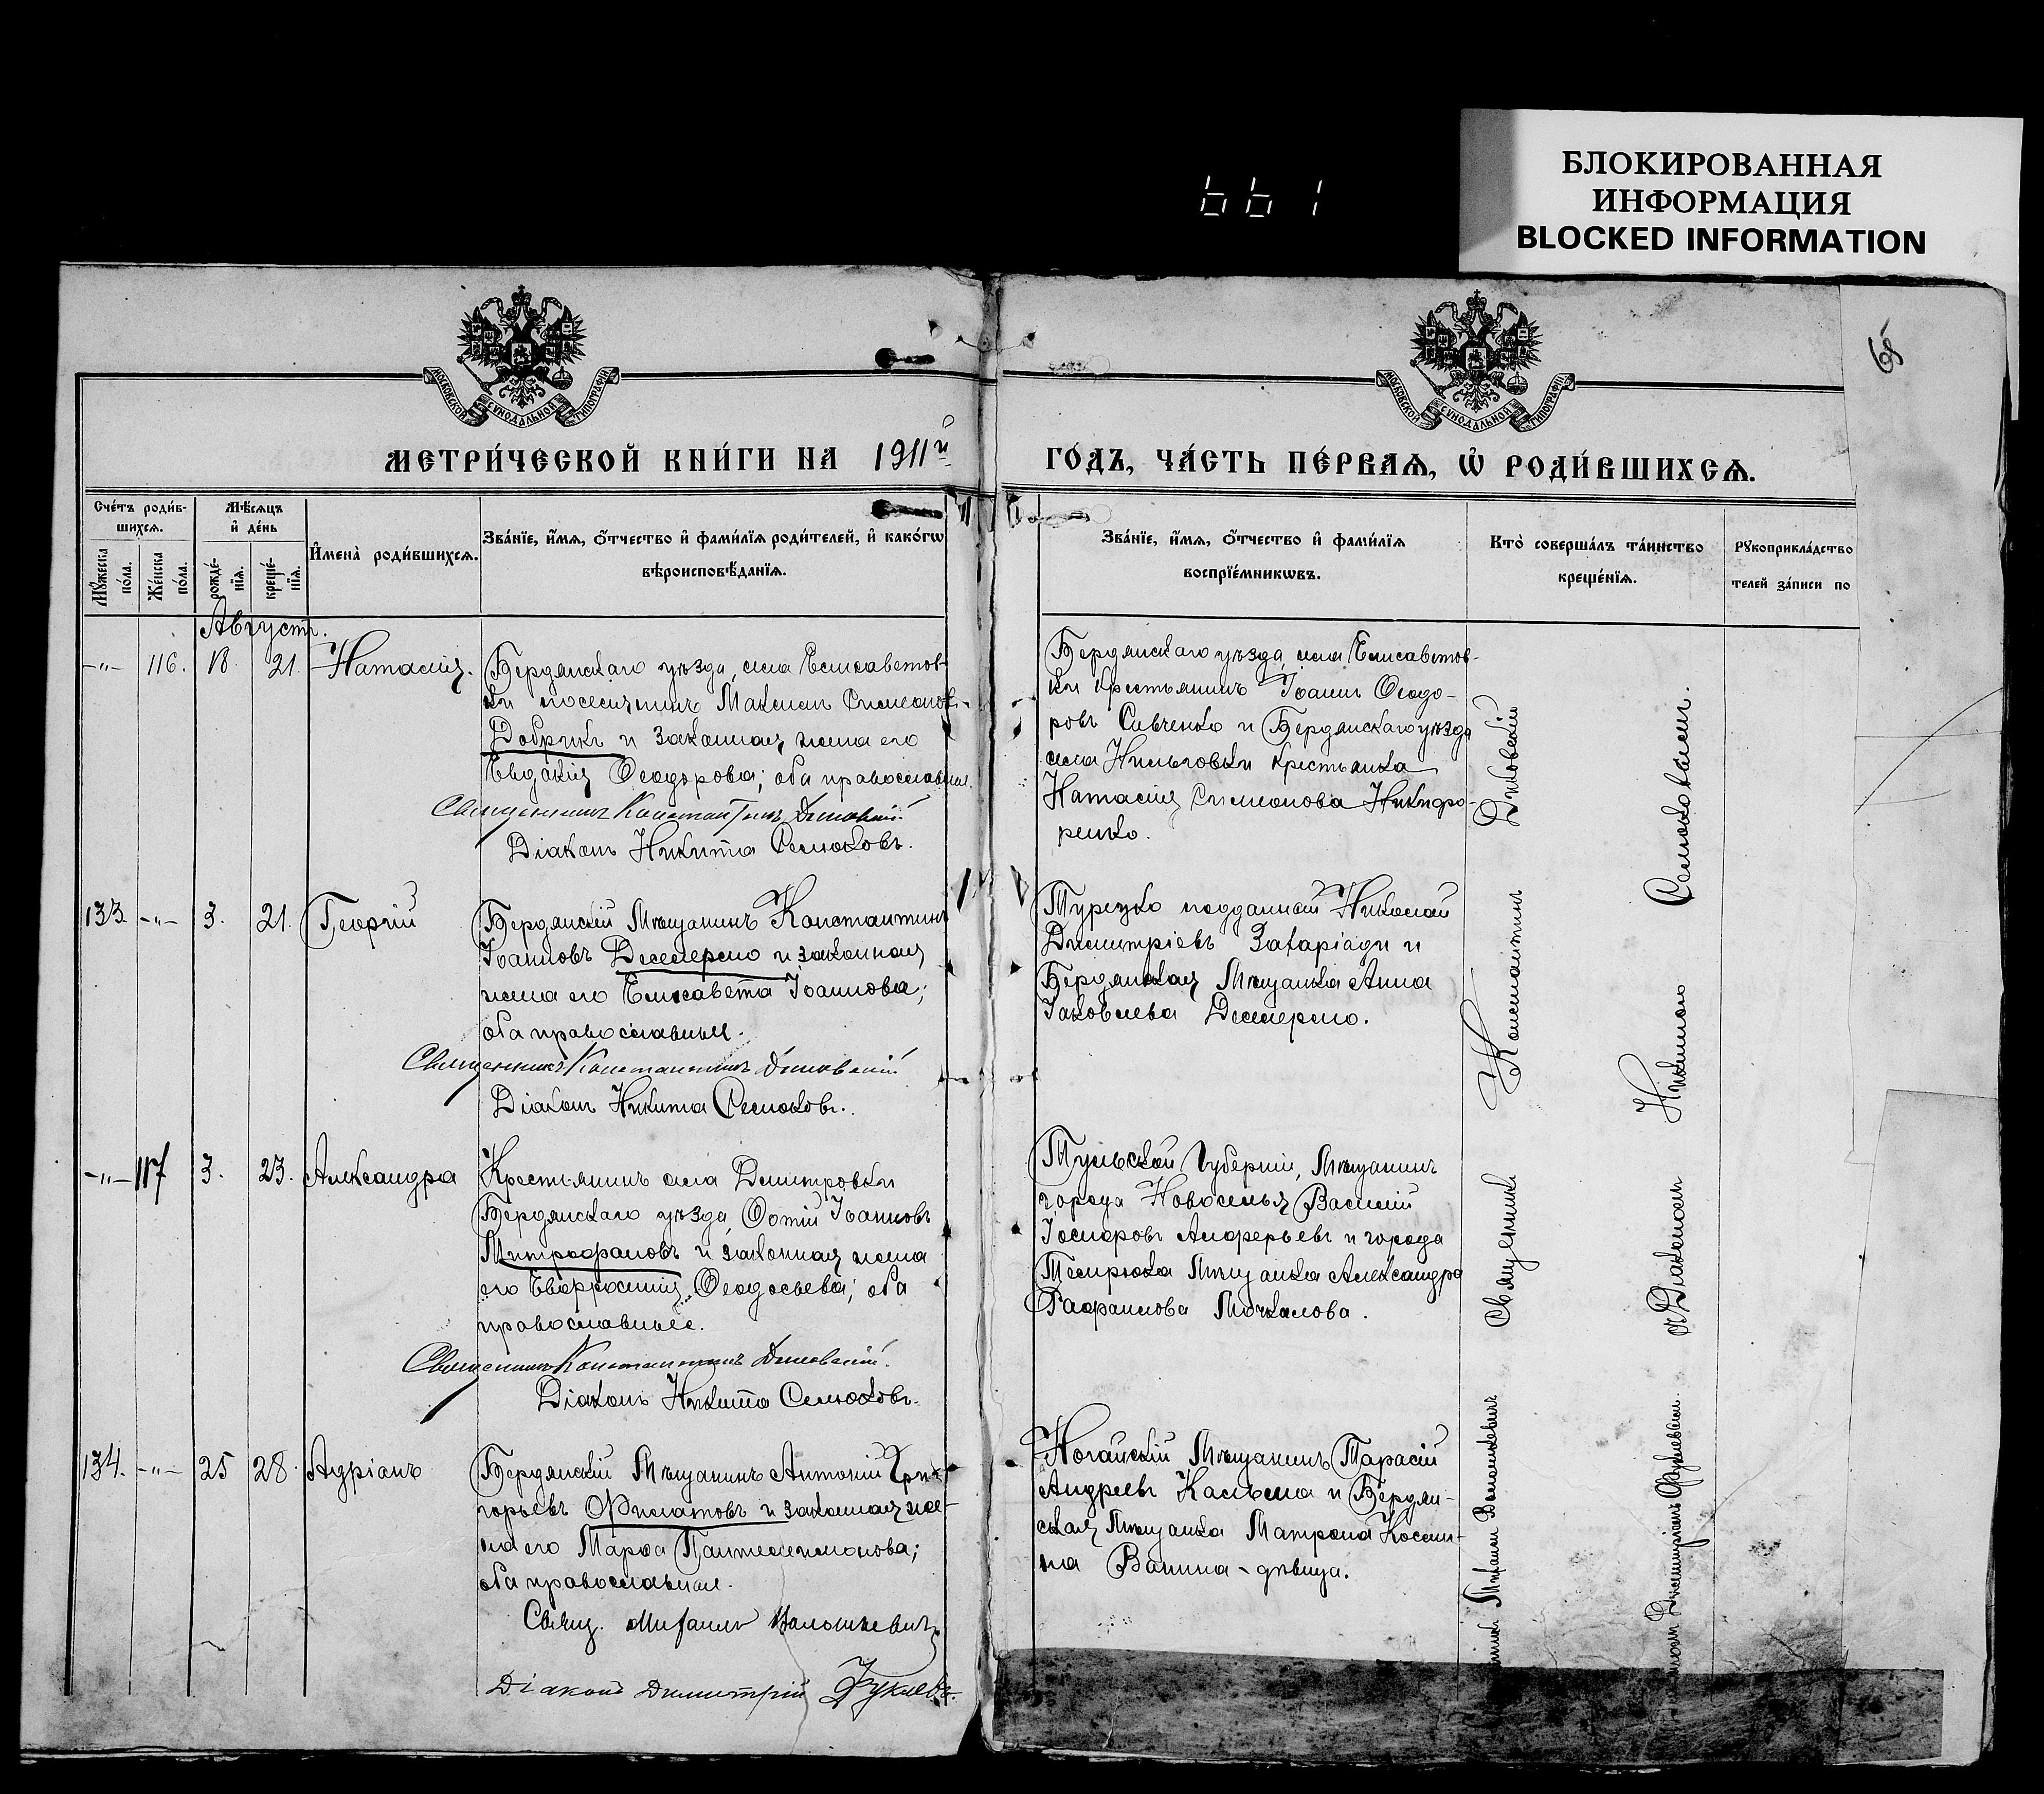 БЛОКИРОВАННАЯ
ИНФОРМАЦИЯ
BLOCKED INFORMATION
661
65
МОСКОВСКОЙ СѴНОДАЛЬНОЙ ТИПОГРАФІИ
МОСКОВСКОЙ СѴНОДАЛЬНОЙ ТИПОГРАФІИ
МЕТРИ́ЧЕСКОЙ КНИ́ГИ НА 1911й
ГО́ДЪ, ЧА́СТЬ ПЕ́РВАѦ, Ѡ҆ РОДИ́ВШИХСѦ.
Сче́тъ роди́в-
шихсѧ.
Мꙋ́жеска
по́ла.
Же́нска
по́ла.
Мѣ́сѧцъ
и҆ де́нь
рожде́-
нїѧ.
креще́-
нїѧ.
И҆мена̀ роди́вшихсѧ.
Зва́нїе, и҆́мѧ, ѻ҆́тчество и҆ фами́лїѧ роди́телей, и҆ како́гѡ
вѣроисповѣ́данїѧ.
Зва́нїе, и҆́мѧ, ѻ҆́тчество и҆ фами́лїѧ
воспрїе́мникѡвъ.
Кто̀ соверша́лъ та́инство
креще́нїѧ.
Рꙋкоприкла́дство
телей за́писи по
Августъ.
-"- 116. 18. 21. Наталія.
Бердянскаго уѣзда, села Елисаветов-
ки поселянинъ Максимъ Симеоновъ
Добрикъ и законная жена его
Евдокія Ѳеодорова; оба православныя.
Священникъ Константинъ
Діаконъ Никита Селюковъ.
Бердянскаго уѣзда, села Елисаветов-
ки крестьянинъ Іоаннъ Ѳеодо-
ровъ Савченко и Бердянскаго уѣзда
села Нельговки крестьянка
Наталія Симеонова Никифо-
ренко.
133. -"- 3. 21. Георгій
Бердянскій Мѣщанинъ Константинъ
Іоанновъ Деселерсно и законная
жена его Елисавета Іоаннова;
оба православные.
Священникъ Константинъ
Діаконъ Никита Селюковъ.
Турецко подданный Николай
Димитріевъ Захаріади и
Бердянская Мѣщанка Анна
Іаковлева
-"- 117 3. 23. Александра
Крестьянинъ села Димитровки
Бердянскаго уѣзда, Фотій Іоанновъ
Митрофановъ и законная жена
его Евфросинія Ѳеодосьева; оба
православные.
Священникъ Константинъ
Діаконъ Никита Селюковъ.
Тульской Губерніи, Мѣщанинъ
города Новосиля Василій
Алферьевъ и города
Темрюка Мѣщанка Александра
Мочалова.
134. -"- 25 28. Адріанъ
Бердянскій Мѣщанинъ Антоній Гри-
горьевъ Филатовъ и законная же-
на его Марѳа Пантелеимонова;
оба православные.
Свящ. Михаилъ
Діаконъ Димитрій
Ногайскій Мѣщанинъ Тарасій
Андреевъ и Бердян-
ская Мѣщанка Матрона Косьми-
на Ванина - дѣвица.
Священникъ Константинъ
съ Діакономъ Никитою Селюковымъ.
Михаилъ